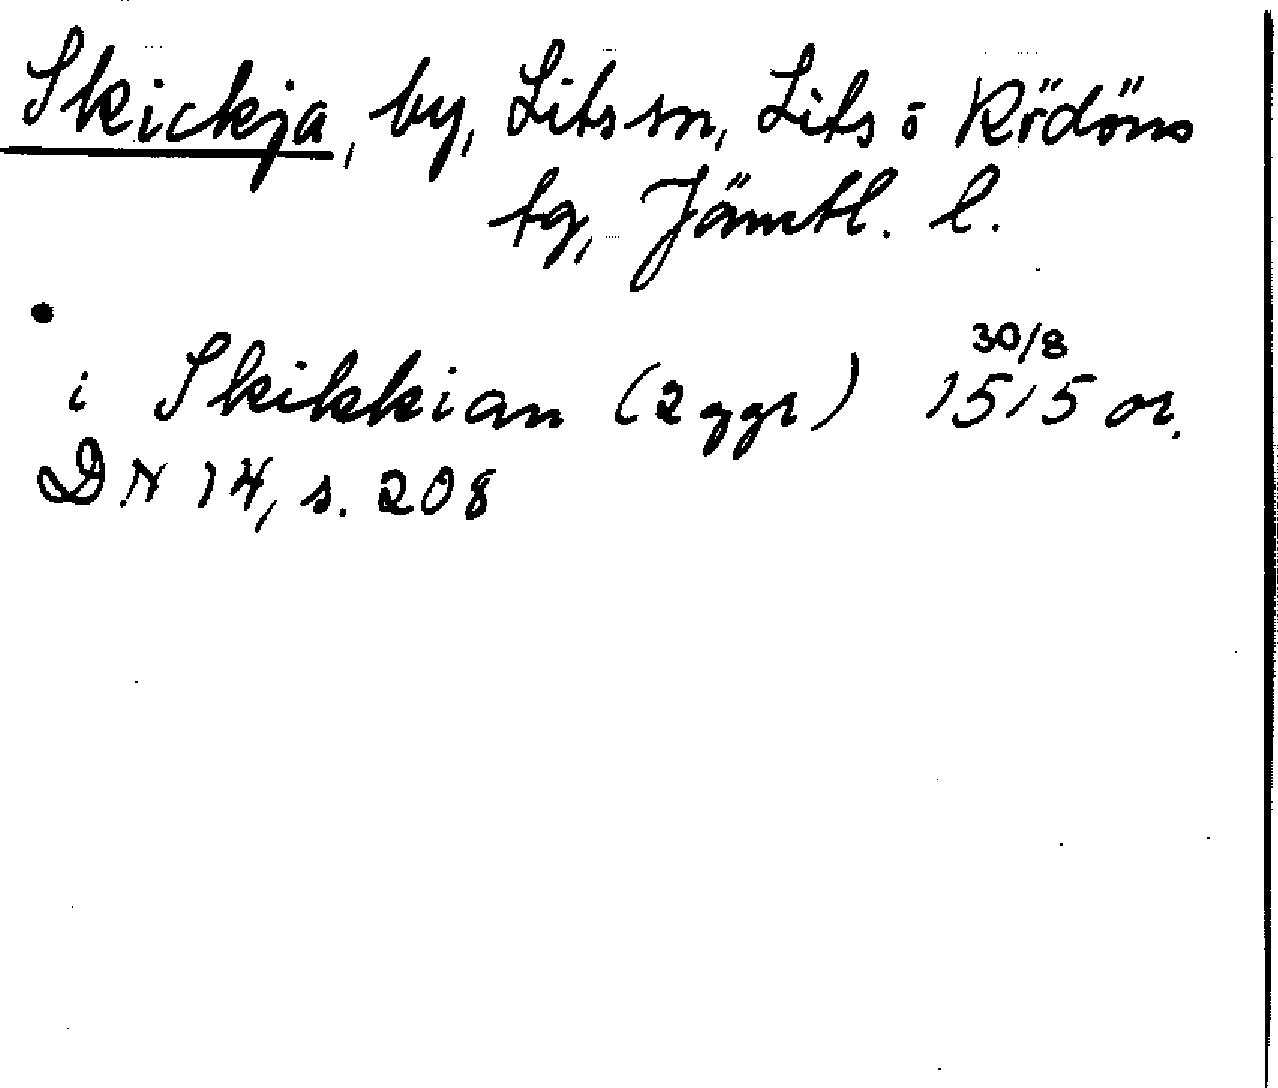 Skickja, by, Lits sn, Lits o Rödöns
tg, Jämtl. l.
i Skikkian (2 ggr) 30/8 1515 or.
DN 14, s. 208